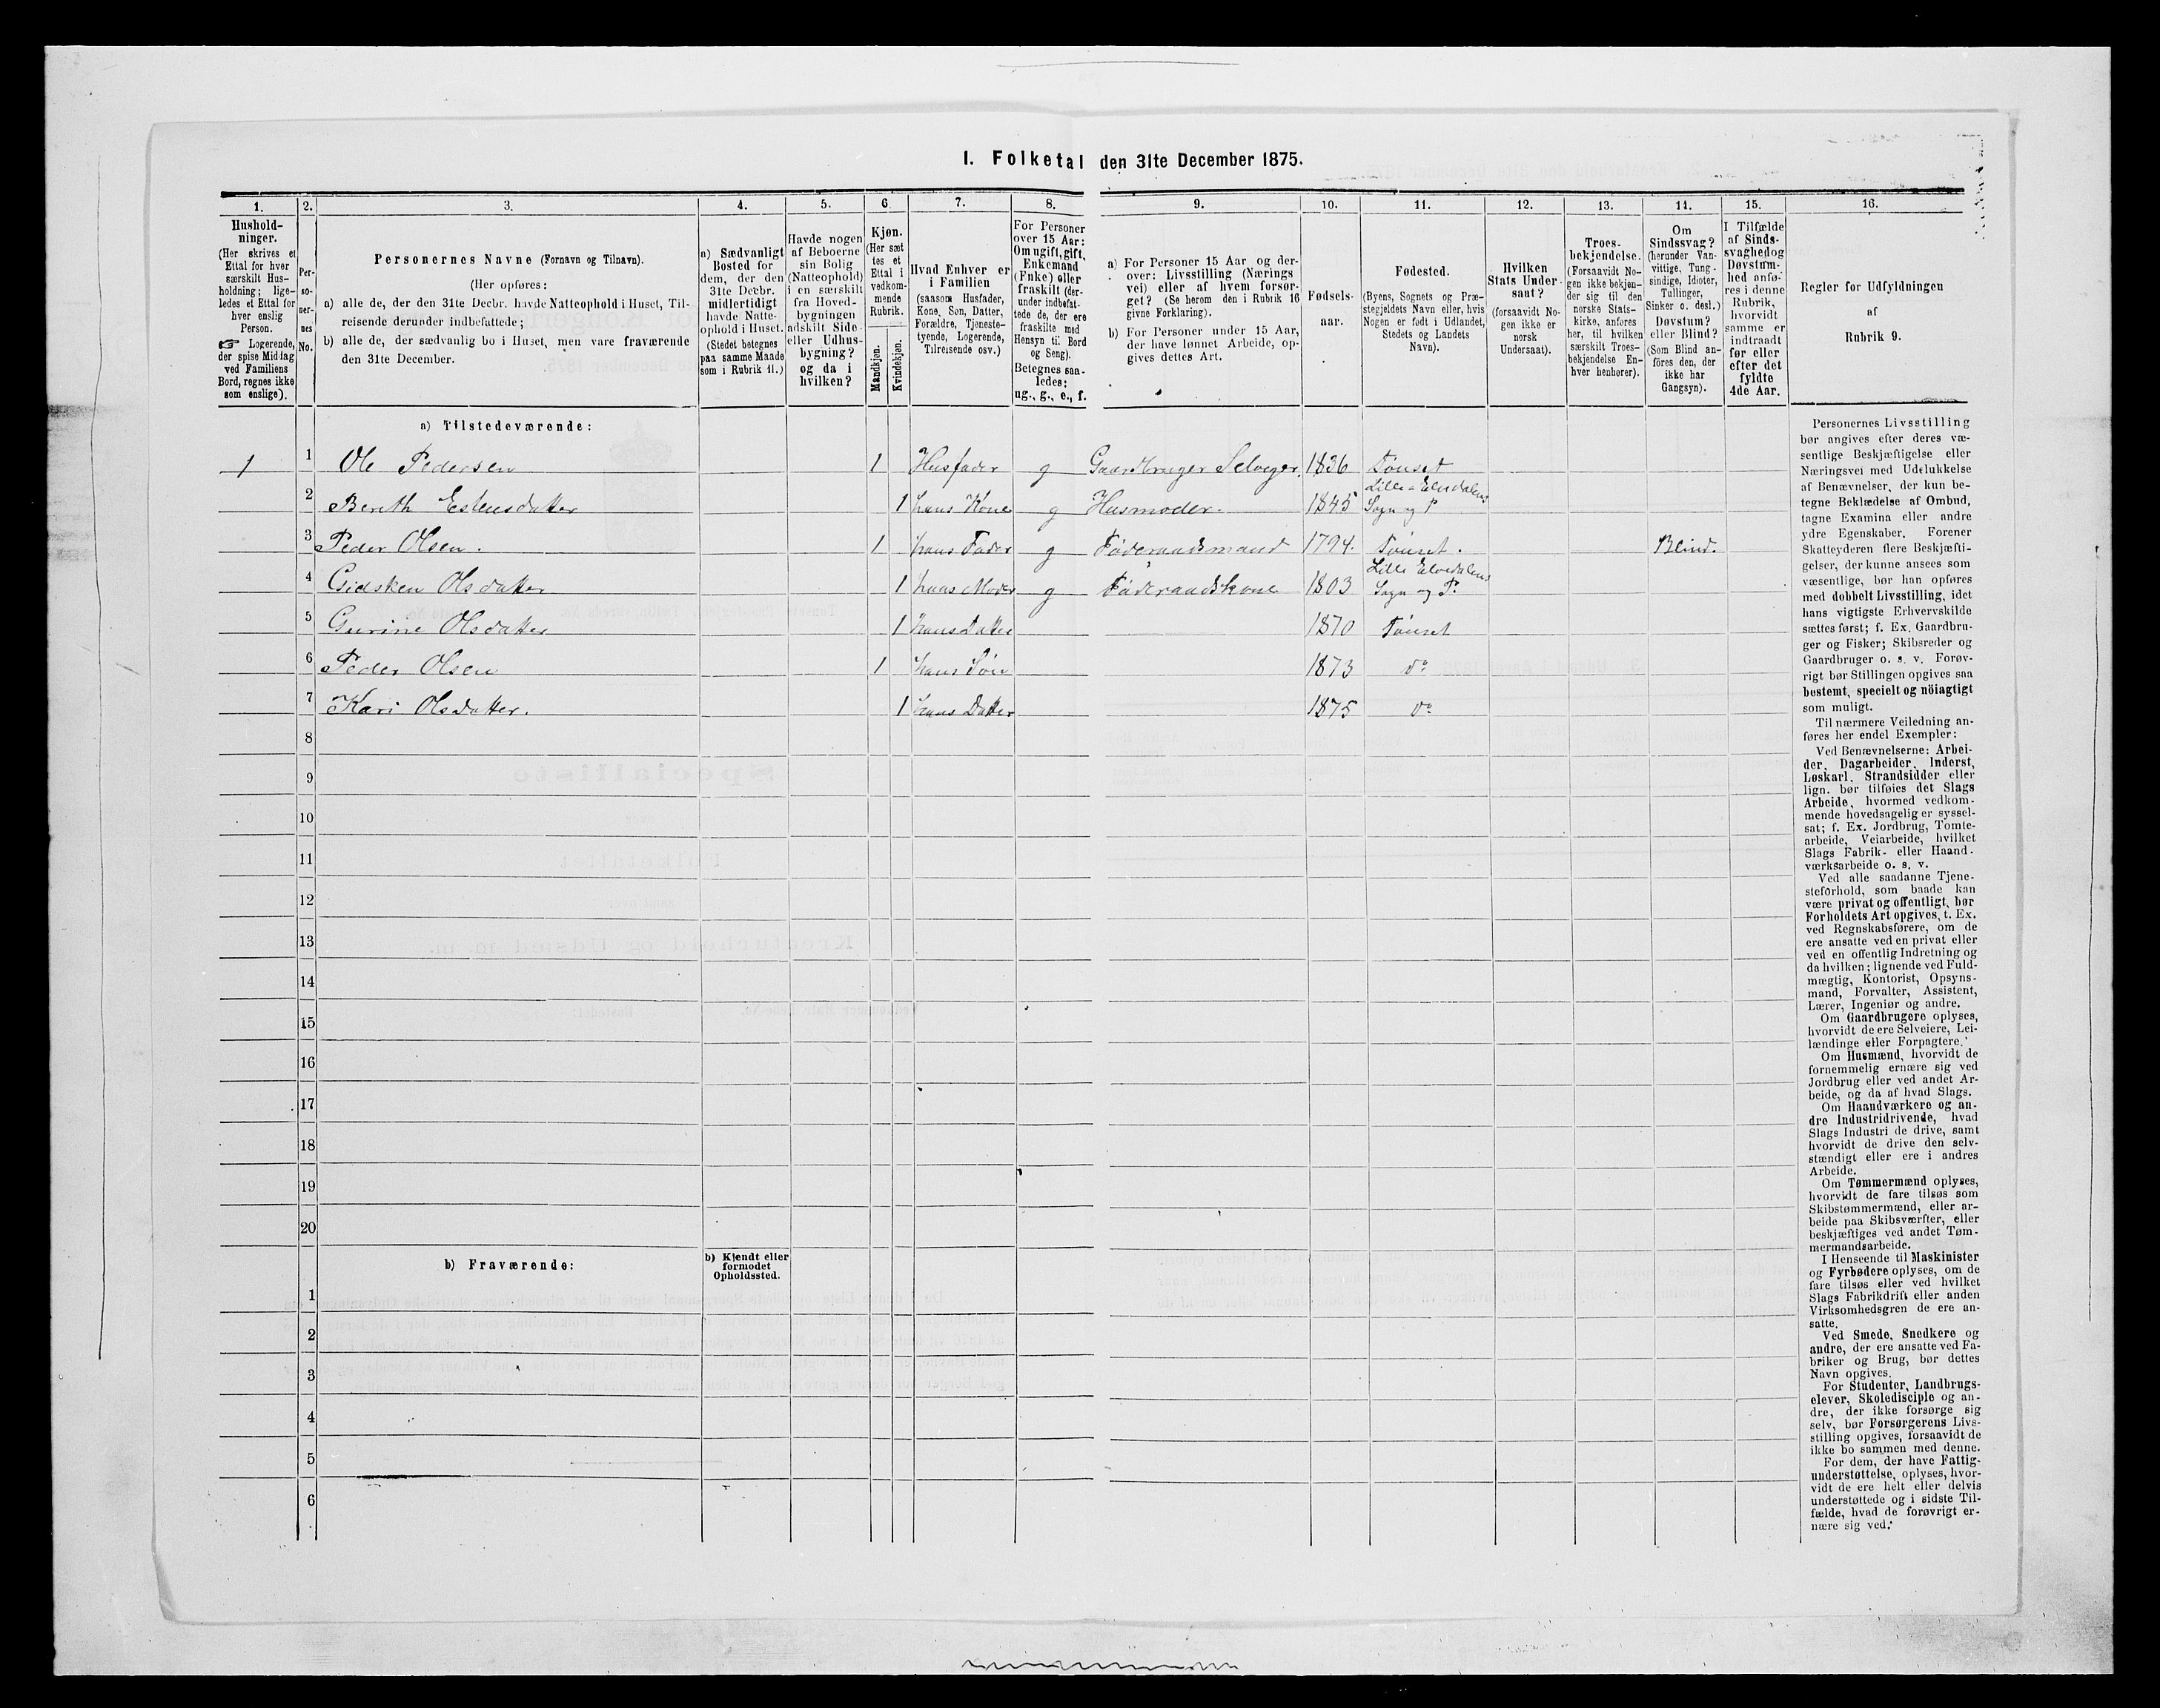 I. Folketal den 31te December 1875.
1. 2. 3. 4. 5. 6. 7. 8. 9. 10. 11. 12. 13. 14. 15. 16.
Hushold-
ninger.
(Her skrives et
Ettal for hver
særskilt Hus-
holdning; lige-
ledes et Ettal for
hver enslig
Person.
☞ Logerende,
der spise Middag
ved Familiens
Bord, regnes ikke
som enslige).
Per-
so-
ner-
nes
No.
Personernes Navne (Fornavn og Tilnavn).
(Her opføres:
a) alle de, der den 31te Decbr. havde Natteophold i Huset, Til-
reisende derunder indbefattede;
b) alle de, der sædvanlig bo i Huset, men vare fraværende
den 31te December.
a) Sædvanligt
Bosted for
dem, der den
31te Decbr.
midlertidigt
havde Natte-
ophold i Huset.
(Stedet betegnes
paa samme Maade
som i Rubrik 11.)
Havde nogen
af Beboerne
sin Bolig
(Natteophold)
i en særskilt
fra Hoved-
bygningen
adskilt Side-
eller Udhus-
bygning?
og da i
hvilken?
Kjøn.
(Her sæt
tes et
Ettal i
vedkom-
mende
Rubrik.
Mandkjøn.
Kvindekjøn.
Hvad Enhver er
i Familien
(saasom Husfader,
Kone, Søn, Datter,
Forældre, Tjeneste-
tyende, Logerende,
Tilreisende osv.)
For Personer
over 15 Aar:
Om ugift, gift,
Enkemand
(Enke) eller
fraskilt (der-
under indbefat-
tede de, der ere
fraskilte med
Hensyn til Bord
og Seng).
Betegnes saa-
ledes:
ug., g., e., f.
a) For Personer 15 Aar og der-
over: Livsstilling (Nærings
vei) eller af hvem forsør-
get? (Se herom den i Rubrik 16
givne Forklaring).
b) For Personer under 15 Aar,
der have lønnet Arbeide, op-
gives dettes Art.
Fødsels-
aar.
Fødested.
(Byens, Sognets og Præ-
stegjeldets Navn eller, hvis
Nogen er født i Udlandet,
Stedets og Landets
Navn).
Hvilken
Stats Under-
saat?
(forsaavidt No-
gen ikke er
norsk
Undersaat).
Troes-
bekjendelse.
(Forsaavidt No-
gen ikke bekjen-
der sig til den
norske Stats-
kirke, anføres
her, til hvilken
særskilt Troes-
bekjendelse En-
hver henhører).
Om
Sindssvag?
(herunder Van-
vittige, Tung-
sindige, Idioter,
Tullinger,
Sinker o. desl.)
Døvstum?
eller Blind?
(Som Blind an-
føres den, der
ikke har
Gangsyn).
I Tilfælde
af Sinds-
svaghed og
Døvstum-
hed anfø-
res i denne
Rubrik,
hvorvidt
samme er
indtraadt
før eller
efter det
fyldte
4de Aar.
Regler for Udfyldningen
af
Rubrik 9.
a) Tilstedeværende:
1 1 Ole Pedersen 1 Husfader g Gaardbruger Selveger. 1836 Tønset
2 Bereth Estensdatter 1 hans Kone g Husmoder. 1845 Lille-Elvdalens
Sogn og P
3 Peder Olsen. 1 hans Fader g Føderaadsmand 1794. Tønset. Blind.
4 Gidsken Olsdatter 1 hans Moder g Føderaadskone 1803 Lille Elvedalens
Sogn og P.
5 Gurine Olsdatter 1 hans Datter 1870 Tønset
6 Peder Olsen 1 hans Søn 1873 do
7 Kari Olsdatter. 1 hans Datter 1875 do
8
9
10
11
12
13
14
15
16
17
18
19
20
b) Fraværende:
b) Kjendt eller
formodet
Opholdssted.
1
2
3
4
5
6
Personernes Livsstilling
bør angives efter deres væ-
sentlige Beskjæftigelse eller
Næringsvei med Udelukkelse
af Benævnelser, der kun be-
tegne Beklædelse af Ombud,
tagne Examina eller andre
ydre Egenskaber. Forener
Skatteyderen flere Beskjæfti-
gelser, der kunne ansees som
væsentlige, bør han opføres
med dobbelt Livsstilling, idet
hans vigtigste Erhvervskilde
sættes først; f. Ex. Gaardbru-
ger og Fisker; Skibsreder og
Gaardbruger o. s. v. Forøv-
rigt bør Stillingen opgives saa
bestemt, specielt og nöiagtigt
som muligt.
Til nærmere Veiledning an-
føres her endel Exempler:
Ved Benævnelserne: Arbei-
der, Dagarbeider, Inderst,
Løskarl, Strandsidder eller
lign. bør tilføies det Slags
Arbeide, hvormed vedkom-
mende hovedsagelig er syssel-
sat; f. Ex. Jordbrug, Tomte-
arbeide, Veiarbeide, hvilket
Slags Fabrik- eller Haand-
værksarbeide o. s. v.
Ved alle saadanne Tjene-
steforhold, som baade kan
være privat og offentligt, bør
Forholdets Art opgives, t. Ex.
ved Regnskabsførere, om de
ere ansatte ved en privat eller
ved en offentlig Indretning og
da hvilken; lignende ved Fuld-
mægtig, Kontorist, Opsyns-
mand, Forvalter, Assistent,
Lærer, Ingeniør og andre.
Om Gaardbrugere oplyses,
hvorvidt de ere Selveiere, Lei-
lændinge eller Forpagtere.
Om Husmænd, hvorvidt de
fornemmelig ernære sig ved
Jordbrug eller ved andet Ar-
beide, og da af hvad Slags.
Om Haandværkere og an-
dre Industridrivende, hvad
Slags Industri de drive, samt
hvorvidt de drive den selv-
stændigt eller ere i andres
Arbeide.
Om Tømmermænd oplyses,
hvorvidt de fare tilsøs som
Skibstømmermænd, eller ar-
beide paa Skibsværfter, eller
beskjæftiges ved andet Tøm-
mermandsarbeide.
I Henseende til Maskinister
og Fyrbødere oplyses, om de
fare tilsøs eller ved hvilket
Slags Fabrikdrift eller anden
Virksomhedsgren de ere an-
satte.
Ved Smede, Snedkere og
andre, der ere ansatte ved Fa-
briker og Brug, bør dettes
Navn opgives.
For Studenter, Landbrugs-
elever, Skoledisciple og an-
dre, der ikke forsørge sig
selv, bør Forsørgerens Livs-
stilling opgives, forsaavidt de
ikke bo sammen med denne.
For dem, der have Fattig-
understøttelse, oplyses, hvor-
vidt de ere helt eller delvis
understøttede og i sidste Til-
fælde, hvad de forøvrigt er-
nære sig ved.